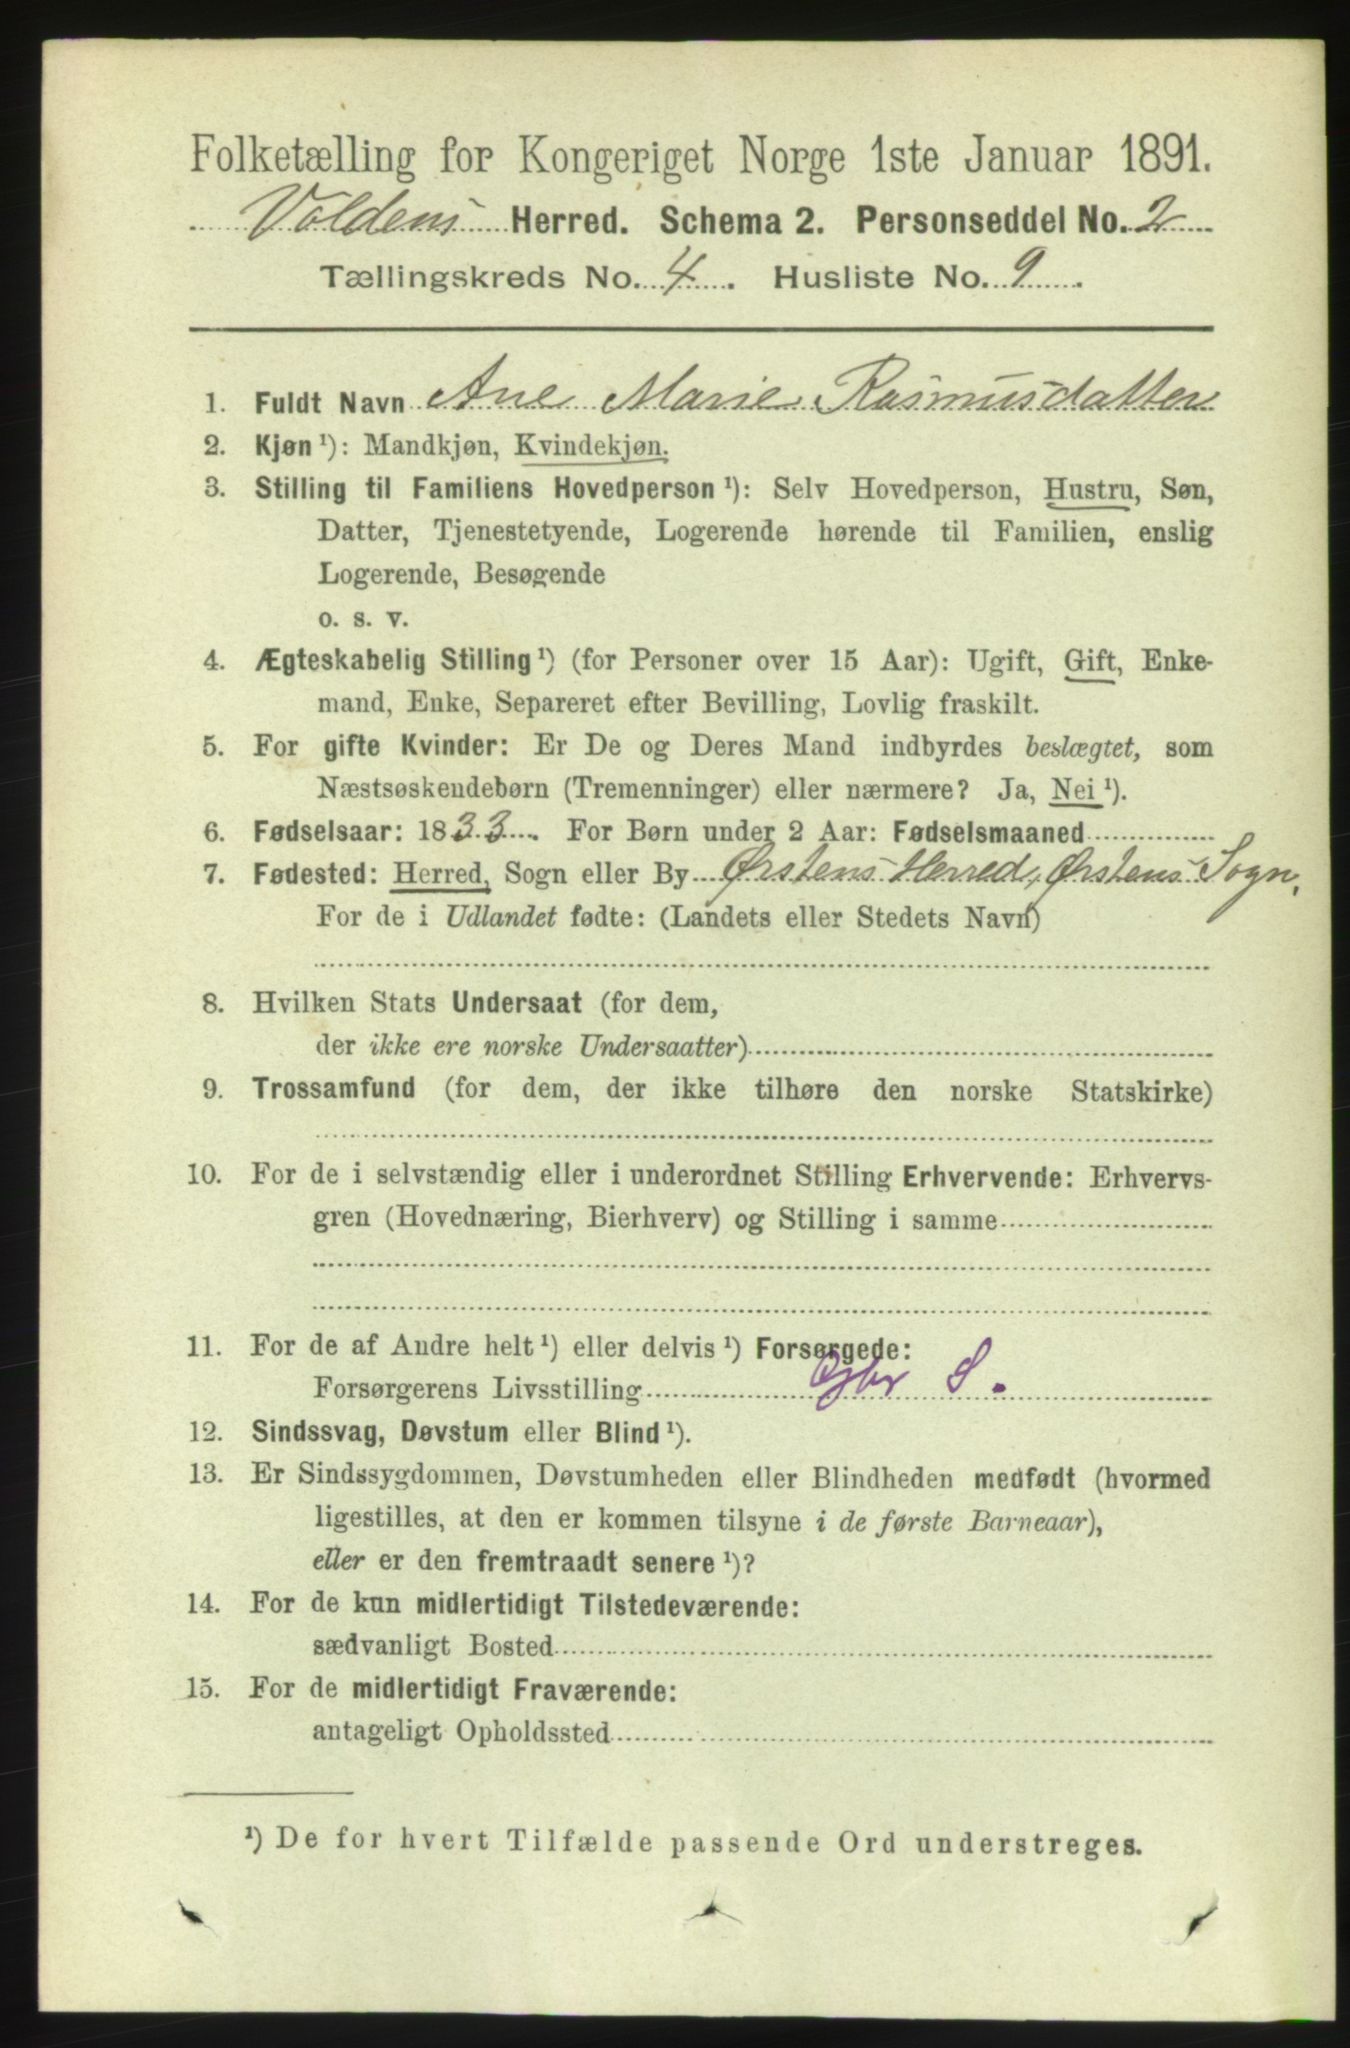 Folketælling for Kongeriget Norge 1ste Januar 1891.
Voldens Herred. Schema 2. Personseddel No. 2
Tællingskreds No. 4. Husliste No. 9.
1. Fuldt Navn Ane Marie Rasmusdatter
2. Kjøn ¹): Mandkjøn, Kvindekjøn.
3. Stilling til Familiens Hovedperson ¹): Selv Hovedperson, Hustru, Søn,
Datter, Tjenestetyende, Logerende hørende til Familien, enslig
Logerende, Besøgende
o. s. v.
4. Ægteskabelig Stilling ¹) (for Personer over 15 Aar): Ugift, Gift, Enke-
mand, Enke, Separeret efter Bevilling, Lovlig fraskilt.
5. For gifte Kvinder: Er De og Deres Mand indbyrdes beslægtet, som
Næstsøskendebørn (Tremenninger) eller nærmere? Ja, Nei ¹).
6. Fødselsaar: 1833. For Børn under 2 Aar: Fødselsmaaned
7. Fødested: Herred, Sogn eller By Ørstens Herred, Ørstens Sogn.
For de i Udlandet fødte: (Landets eller Stedets Navn)
8. Hvilken Stats Undersaat (for dem,
der ikke ere norske Undersaatter)
9. Trossamfund (for dem, der ikke tilhøre den norske Statskirke)
10. For de i selvstændig eller i underordnet Stilling Erhvervende: Erhvervs-
gren (Hovednæring, Bierhverv) og Stilling i samme
11. For de af Andre helt ¹) eller delvis ¹) Forsørgede:
Forsørgerens Livsstilling Gbr S.
12. Sindssvag, Døvstum eller Blind ¹).
13. Er Sindssygdommen, Døvstumheden eller Blindheden medfødt (hvormed
ligestilles, at den er kommen tilsyne i de første Barneaar),
eller er den fremtraadt senere ¹)?
14. For de kun midlertidigt Tilstedeværende:
sædvanligt Bosted
15. For de midlertidigt Fraværende:
antageligt Opholdssted
¹) De for hvert Tilfælde passende Ord understreges.